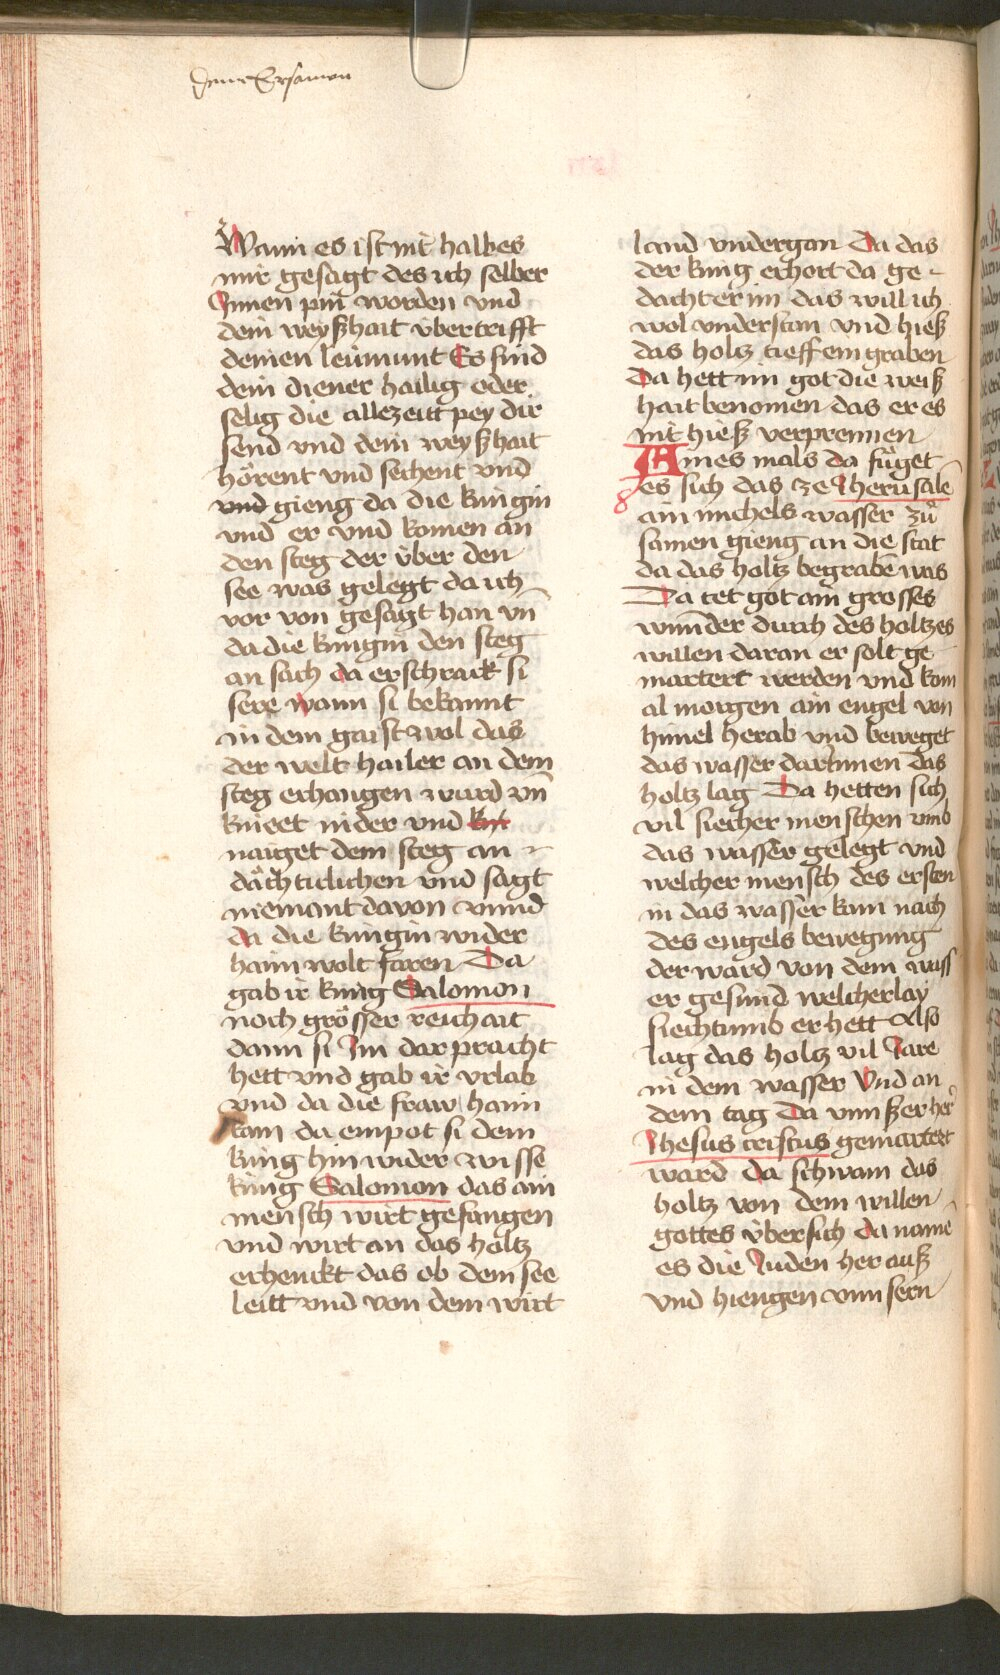 Wann es ist nit halbes
mir gesagt des ich selber
Innen pin worden und
dein weyßhait übertrifft
deinen leümunt Es sind
dein diener hailig oder
selig die allezeitt pey dir
send und dein weyßhait
hörent und sechent und
und gieng da die küngin
und er und komen an
den steg der über den
see was gelegt da ich
vor von gesagt han vn̄
da die küngin den steg
an sach da erschrack si
sere wann si bekannt
in dem gaist wol das
der welt hailer an dem
steg erhangen wurd vn̄
knieet nider und kni
naiget dem steg an
dächticlichen und sagt
niemant davon unnd
da die küngin wider
haim wolt faren Da
gab ir küng Salomon
noch grösser reichait
dann si Im dar pracht
hett und gab ir urlab
und da die fraw haim
kam da empot si dem
küng hin wider wisse
küng Salomon das ain
mensch wirt gefangen
und wirt an das holtz
erhenckt das ob dem see
leitt und von dem wirt
land undergan Da das
der küng erhort da ge-
dacht er im das will ich
wol understan und hieß
das holtz tieff ein graben
Da hett im got die weiß
hait benomen das er es
nit hieß verprennen
Aines mals da füget
es sich das ze Jherusalē
ain michels wasser zů
samen gieng an die stat
da das holtz begrabē was
Da tet got ain grosses
wunder durch des holtzes
willen daran er solt ge
martert werden und kom
al morgen ain engel von
himel herab und beweget
das wasser darinnen das
holtz lag Da hetten sich
vil siecher menschen umb
das wasser gelegt und
welcher mensch des ersten
in das wasser kam nach
des engels bewegung
der ward von dem wass
er gesund welcherlay
siechtumb er hett Also
lag das holtz vil Jare
in dem wasser Und an
dem tag Da unnßer her
Jhesus cristus gemartert
ward da schwam das
holtz von dem willen
gottes übersich da namē
es die Juden her auß
und hiengen unnsern